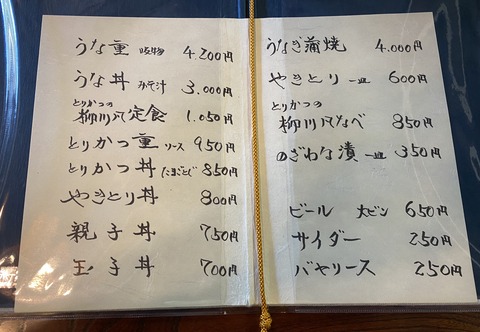 うな重 吸物 4.200円
うな丼 みそ汁 3.000円
とりかつの
柳川风定食 1.050円
とりかつ重 ソース 950円
とりかつ丼 たまごとじ 850円
やきとり丼 800円
親子丼 750円
玉子丼 700円
うなぎ蒲焼 4.000円
やきとり 一皿 600円
とりかつの
柳川风なべ 850円
のざわな漬 一皿 350円
ビール 大ビン 650円
サイダー 250円
バヤリース 250円